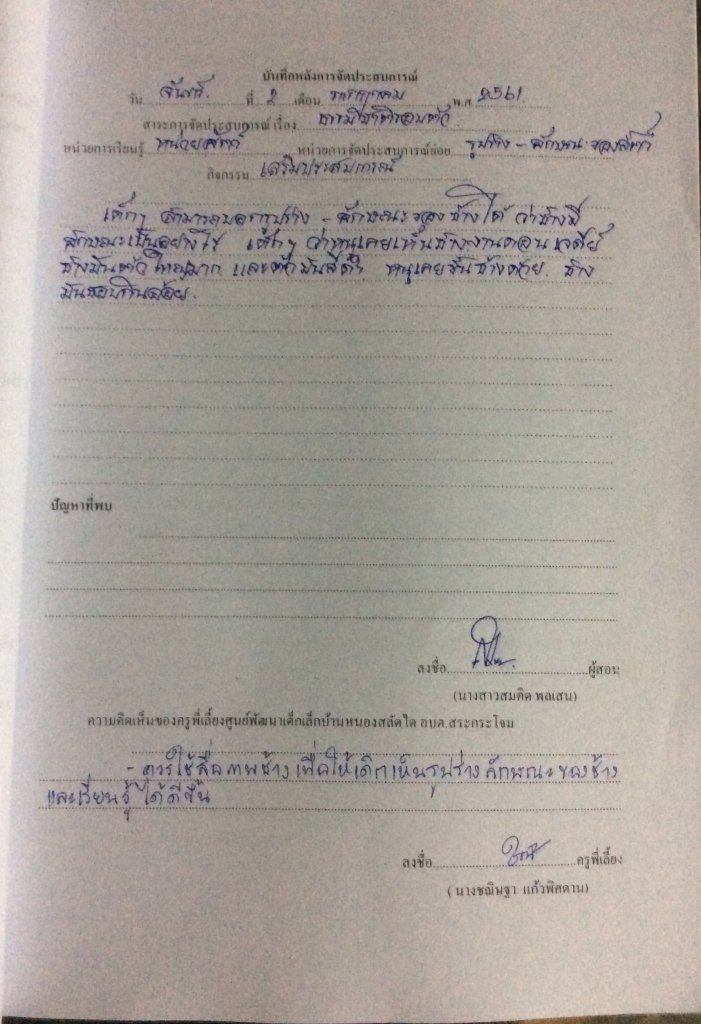 บันทึกหลังการจัดประสบการณ์
วัน จันทร์ ที่ 2 เดือน กรกฎาคม พ.ศ 2561
สาระการจัดประสบการณ์ เรื่อง ธรรมชาติรอบตัว
หน่วยการเรียนรู้ หน่วยสัตว์ หน่วยการจัดประสบการณ์ย่อย รูปร่าง - ลักษณะของสัตว์
กิจกรรม เสริมประสบการณ์
เด็กๆ สามารถบอกรูปร่าง - ลักษณะของช้างได้ ว่าช้างมี
ลักษณะเป็นอย่างไร เด็กๆ ว่าหนูเคยเห็นช้างงานดอนเจดีย์
ช้างมันตัวใหญ่มาก และตัวมันสีดำ หนูเคยขี่ช้างด้วย ช้าง
มันชอบกินอ้อย.
ปัญหาที่พบ
ลงชื่อ ผู้สอน
(นางสาวสมคิด พลเสน)
ความคิดเห็นของครูพี่เลี้ยงศูนย์พัฒนาเด็กเล็กบ้านหนองสลัดได อบต.สระกระโจม
- ควรใช้สื่อภาพช้าง เพื่อให้เด็กเห็นรูปร่าง ลักษณะของช้าง
และเรียนรู้ ได้ดีขึ้น
ลงชื่อ ครูพี่เลี้ยง
( นางชณินฐา แก้วพิศดาน)